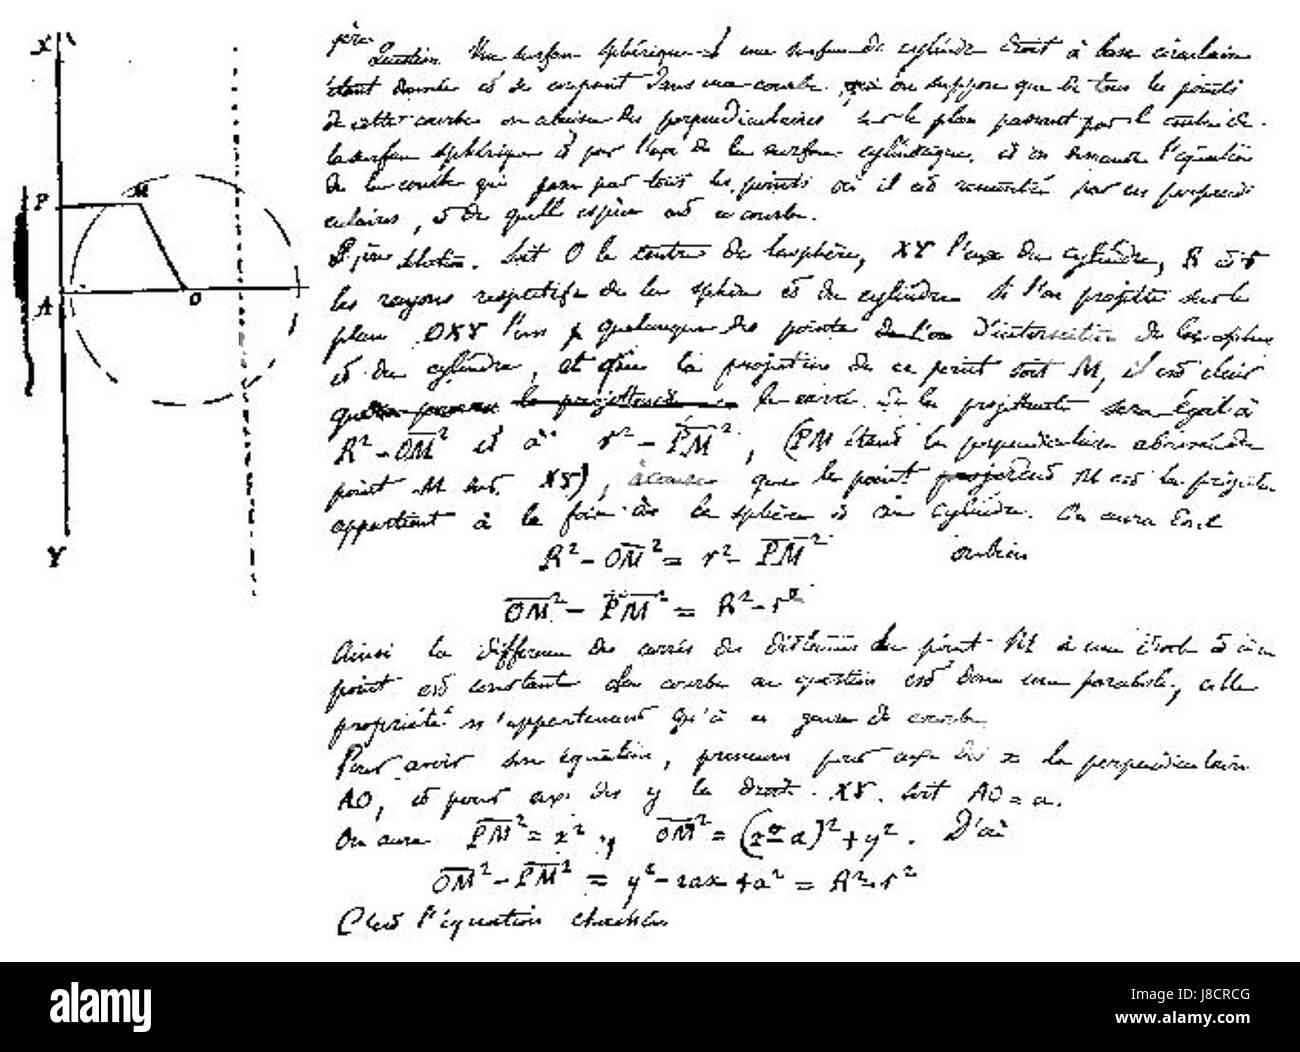 X
P
M
A
O
Y
1ère Question. Une surface sphérique & une surface de cylindre droit à base circulaire
étant données et se coupant dans une courbe, on suppose que de tous les points
de cette courbe on abaisse des perpendiculaires sur le plan passant par le centre de
la surface sphérique et par l'axe de la surface cylindrique, et on demande l'équation
de la courbe qui passe par tous les points où il est rencontré par ces perpendi
culaires, et de quelle espèce est ce courbe.
Solution. Soit O le centre de la sphère, XY l'axe du cylindre, R et r
les rayons respectifs de la sphère et du cylindre Si l'on projette sur le
plan OXY l'un quelconque des points d'intersection de la sphère
et du cylindre, et que la projection de ce point soit M, il est clair
que le carré de la projettante sera égal à
R² - OM² et à r² - PM², (PM étant la perpendiculaire abaissée du
point M sur XY), à cause que le point projetté M est la projetée
appartient à la fois à la sphère et au cylindre. On aura donc
R² - OM² = r² - PM² ou bien
OM² - PM² = R² - r²
Ainsi la différence des carrés des distances du point M à une droite et à un
point est constante La courbe en question est donc une parabole, cette
propriété n'appartenant qu'à ce genre de courbe
Pour avoir son équation, prenons pour axe des x la perpendiculaire
AO, et pour axe des y la droite XY. Soit AO = a.
On aura PM² = x², OM² = (x - a)² + y². D'où
OM² - PM² = y² - 2ax + a² = R² - r²
C'est l'équation cherchée
alamy
Image ID: J8CRCG
www.alamy.com